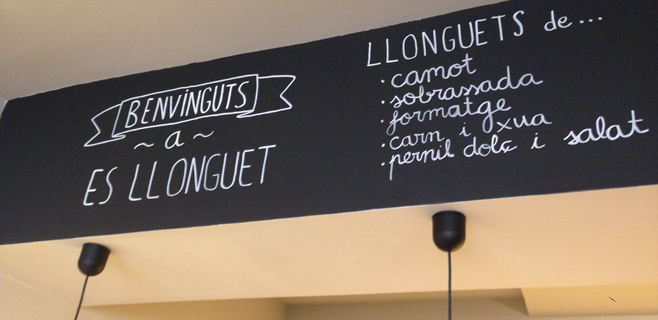 BENVINGUTS
~ a ~
ES LLONGUET
LLONGUETS de...
· camot
· sobrassada
· formatge
· carn i xua
· pernil dolç i salat